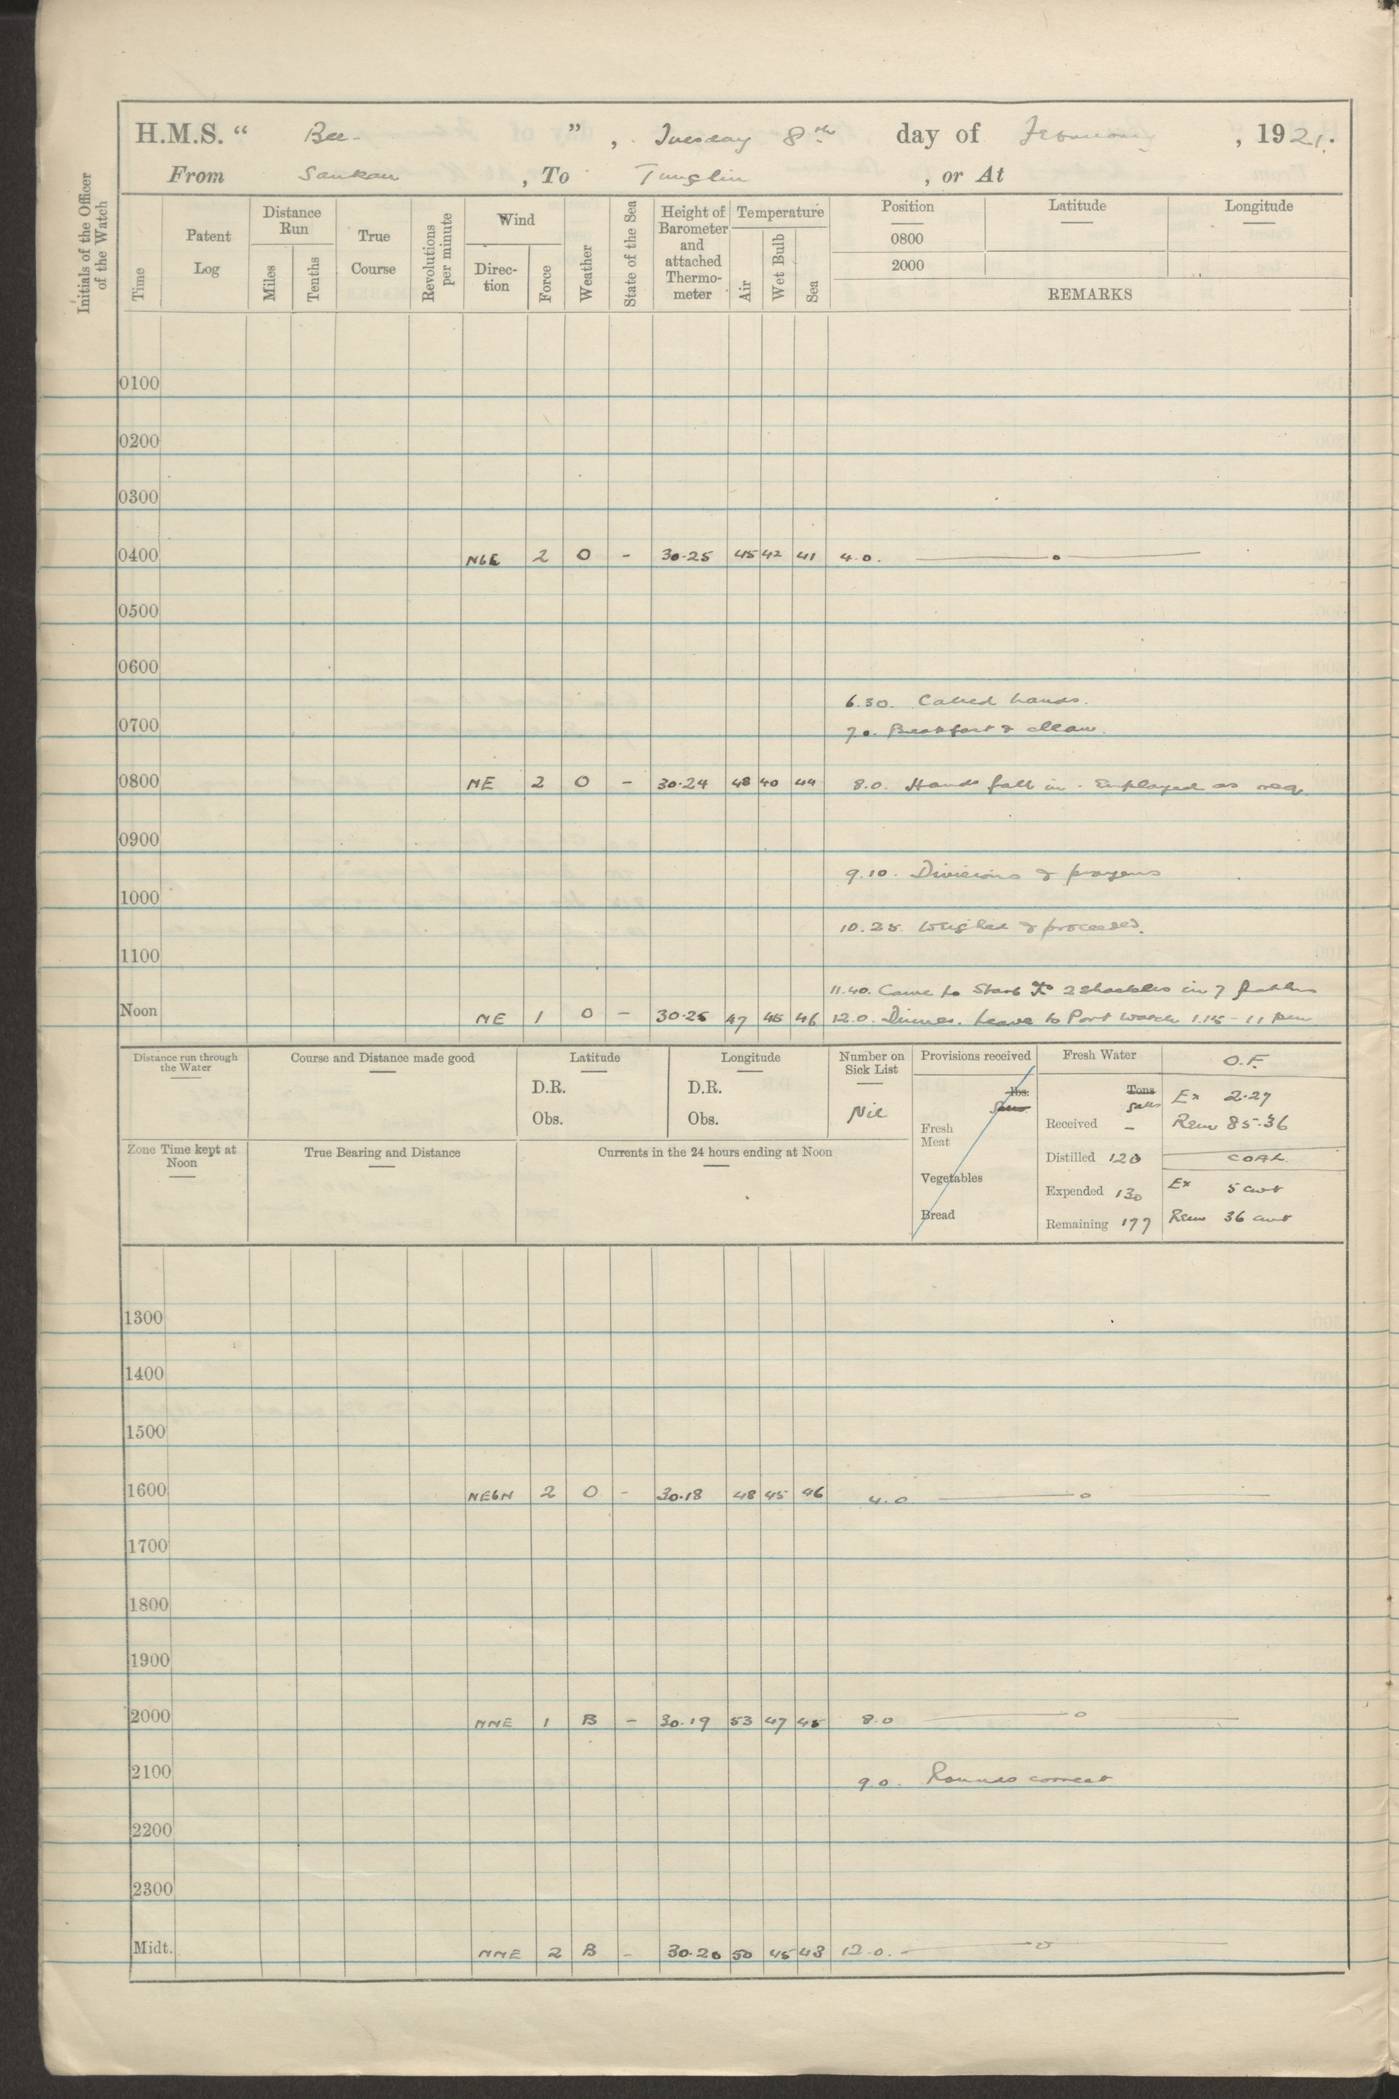 H.M.S. “ Bee ”, Tuesday 8th day of February, 1921.
From Sankau, To Tunglin, or At
Initials of the Officer of the Watch
Time
Patent Log
Distance Run
Miles
Tenths
True Course
Revolutions per minute
Wind
Direc-tion
Force
Weather
State of the Sea
Height of Barometer and attached Thermo-meter
Temperature
Air
Wet Bulb
Sea
Position
0800
2000
Latitude
Longitude
REMARKS
0100
0200
0300
0400 NbE 2 O - 30.25 45 42 41 4.0.
0500
0600
6.30. Called hands.
0700 7.0. Breakfast & clean.
0800 NE 2 O - 30.24 48 40 44 8.0. Hands fall in. Employed as req.
0900
9.10. Divisions & prayers
1000
10.25. Weighed & proceeded.
1100
11.40. Came to Starb 2 shackles in 7 fathms
Noon NE 1 O - 30.25 47 45 46 12.0. Dinner. Leave to Port watch 1.15 - 11 pm
Distance run through the Water
Course and Distance made good
Latitude
D.R.
Obs.
Longitude
D.R.
Obs.
Number on Sick List
Nil
Provisions received
lbs.
Fresh Meat
Vegetables
Bread
Fresh Water
Tons
galls
Received -
Distilled 120
Expended 130
Remaining 177
O.F.
Ex 2.27
Rem 85.36
COAL
Ex 5 cwt
Rem 36 cwt
Zone Time kept at Noon
True Bearing and Distance
Currents in the 24 hours ending at Noon
1300
1400
1500
1600 NEbN 2 O - 30.18 48 45 46 4.0
1700
1800
1900
2000 NNE 1 B - 30.19 53 47 45 8.0
2100 9.0. Rounds correct
2200
2300
Midt. NNE 2 B - 30.20 50 45 43 12.0.